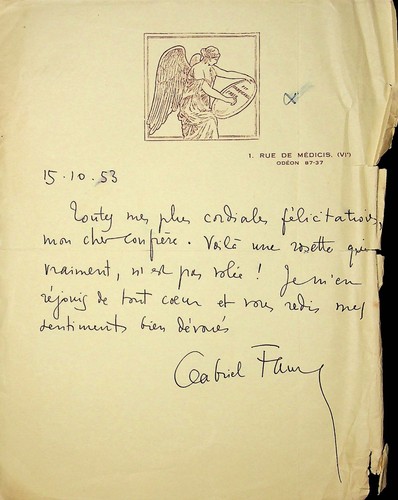 1. RUE DE MÉDICIS. (VIe)
ODÉON 87-37
15.10.53
Toutes mes plus cordiales félicitations,
mon cher confrère. Voilà une rosette qui
vraiment, n'est pas volée ! Je m'en
réjouis de tout cœur et vous redis mes
sentiments bien dévoués
Gabriel